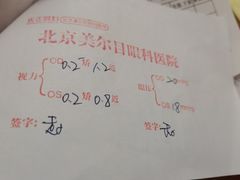 北京美尔目眼科医院
视力 OD 0.2 矫 1.2 近 眼压 OD 20 mmHg
OS 0.2 矫 0.8 近 OS 18 mmHg
签字: 签字: